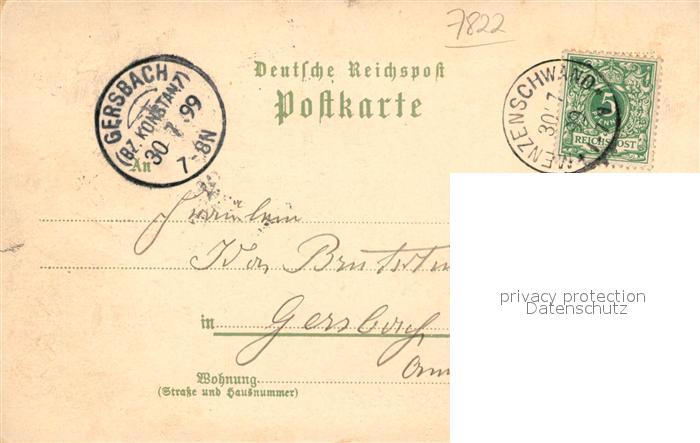 7822
Deutsche Reichspost
Postkarte
GERSBACH
(BZ. KONSTANZ)
30 7 99
7-8N
MENZENSCHWAND
30 7
5
REICHSPOST
An
Fräulein
Ida
in Gersbach
Wohnung
(Straße und Hausnummer)
privacy protection
Datenschutz